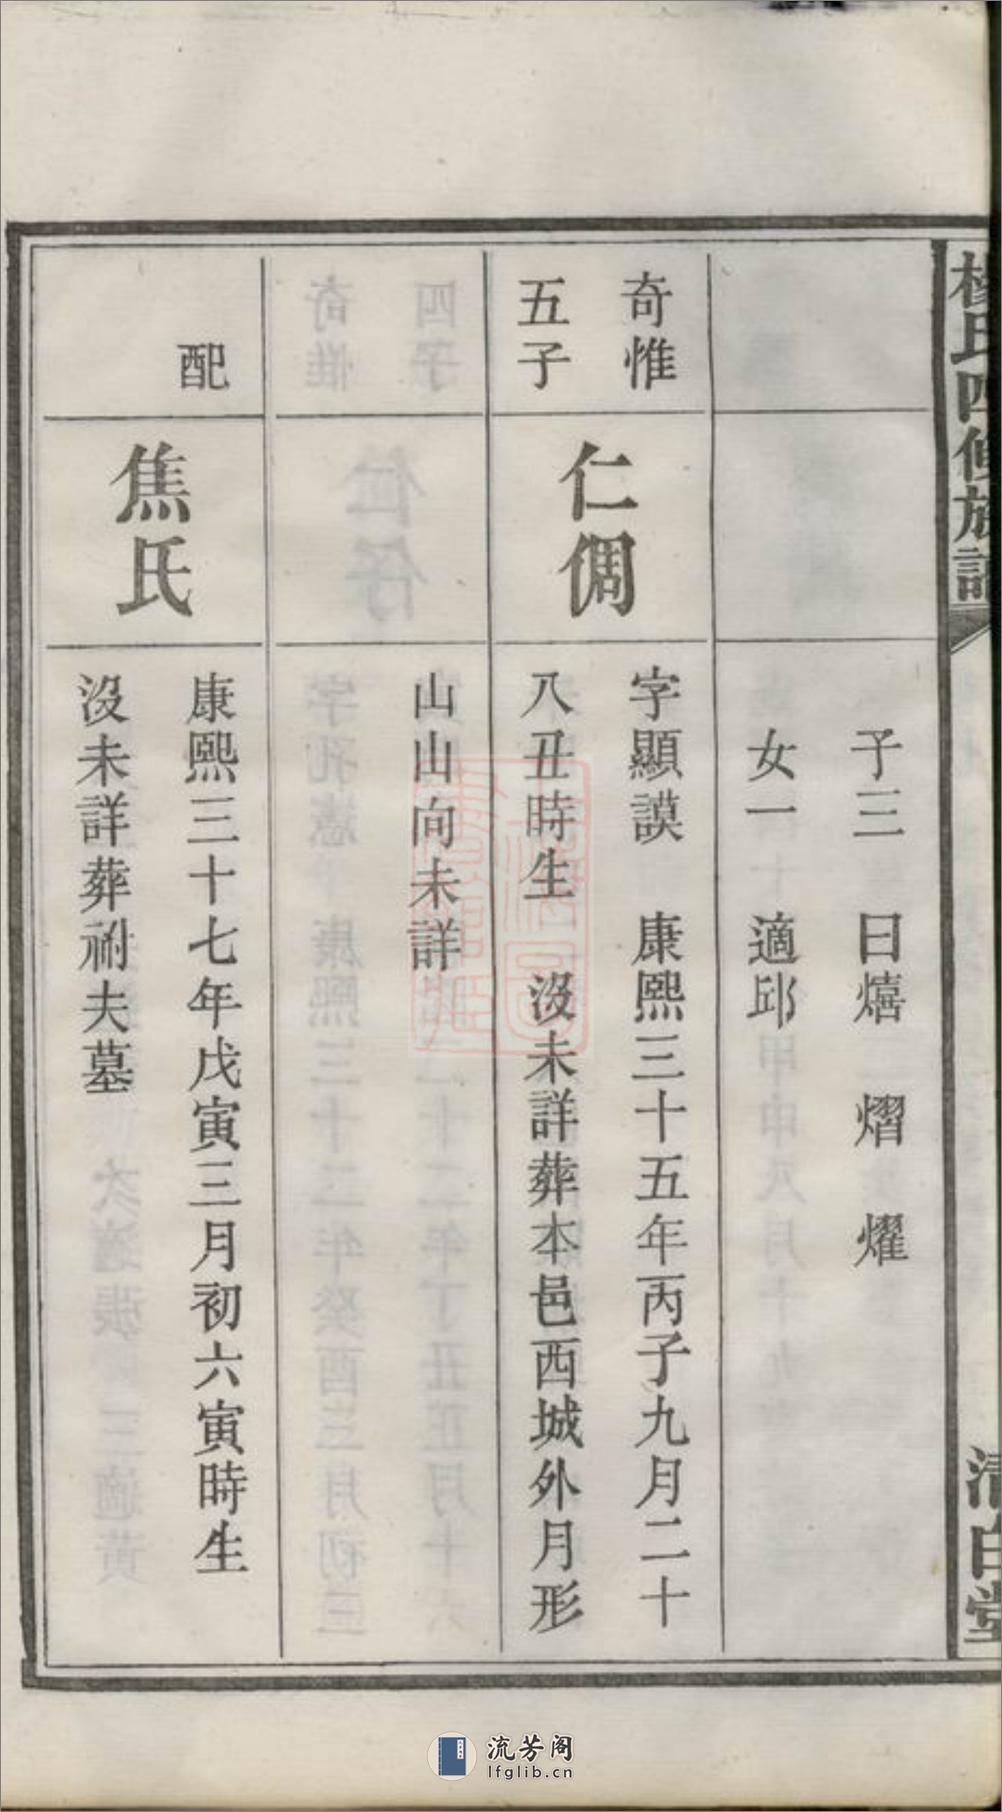 楊氏四修族譜
清白堂
子三　曰熺　熠　燿
女一　適邱
奇惟
五子
仁倜
字顯謨　康熙三十五年丙子九月二十
八丑時生　沒未詳葬本邑西城外月形
山山向未詳
配
焦氏
康熙三十七年戊寅三月初六寅時生
沒未詳葬祔夫墓
流芳阁
lfglib.cn